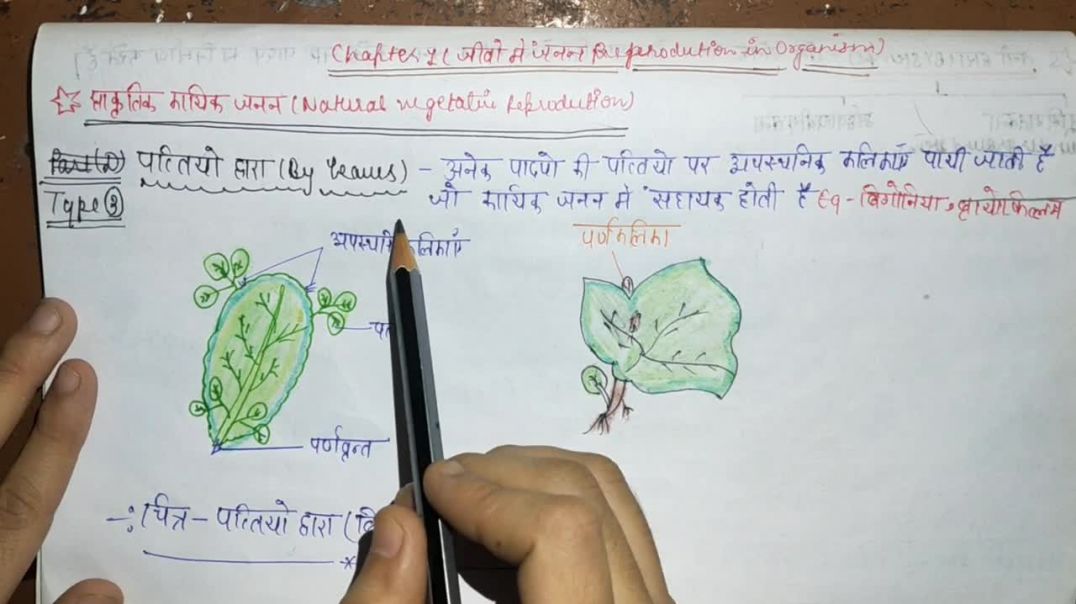 Chapter 1 ( जीवो मे जनन Reproduction in Organism)
☆ प्राकृतिक कायिक जनन (Natural vegetative Reprodution)
पत्तियो द्वारा (By Leaves) - अनेक पादपो की पत्तियो पर अपस्थानिक कलिकाएँ पायी जाती है
Type ③ जो कायिक जनन मे सहायक होती है Eg - बिगोनिया, ब्रायोफिल्लम
पर्णकलिका
पर्णवृन्त
चित्र - पत्तियो द्वारा